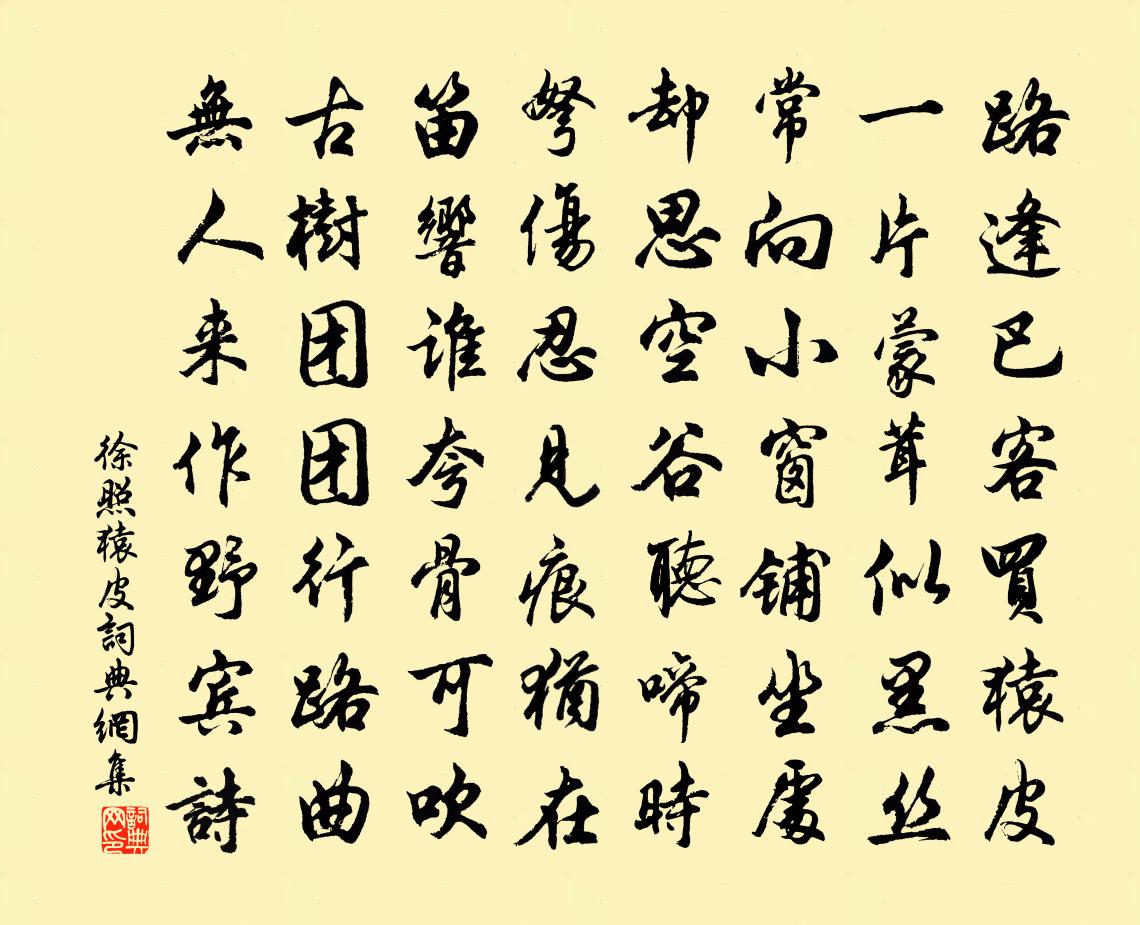 路逢巴客買猿皮
一片蒙茸似黑丝
常向小窗鋪坐處
却思空谷聽啼時
弩傷忍見痕猶在
笛響谁夸骨可吹
古樹团团行路曲
無人来作野宾詩
徐照猿皮詞典網集
詞典
网印